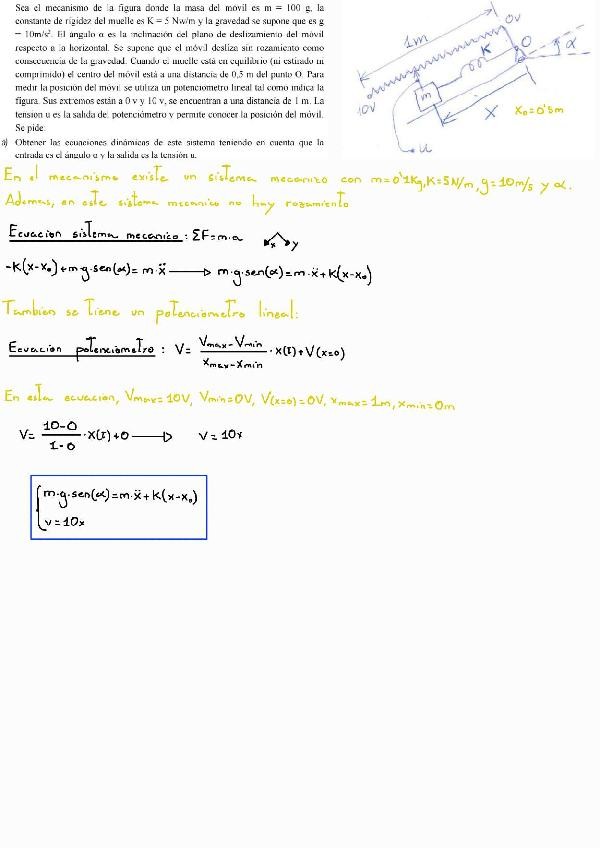 Sea el mecanismo de la figura donde la masa del móvil es m = 100 g, la
constante de rigidez del muelle es K = 5 Nw/m y la gravedad se supone que es g
= 10m/s². El ángulo α es la inclinación del plano de deslizamiento del móvil
respecto a la horizontal. Se supone que el móvil desliza sin rozamiento como
consecuencia de la gravedad. Cuando el muelle está en equilibrio (ni estirado ni
comprimido) el centro del móvil está a una distancia de 0,5 m del punto O. Para
medir la posición del móvil se utiliza un potenciómetro lineal tal como indica la
figura. Sus extremos están a 0 v y 10 v, se encuentran a una distancia de 1 m. La
tensión u es la salida del potenciómetro y permite conocer la posición del móvil.
Se pide:
a) Obtener las ecuaciones dinámicas de este sistema teniendo en cuenta que la
entrada es el ángulo α y la salida es la tensión u.
1m
0v
K
O
α
10v
m
X
X₀=0'5m
u
En el mecanismo existe un sistema mecanico con m=0'1Kg, K=5N/m, g=10m/s y α.
Ademas, en este sistema mecanico no hay rozamiento
Ecuacion sistema mecanico: ΣF=m·a x y
-K(x-x₀)+m·g·sen(α)=m·ẍ → m·g·sen(α)=m·ẍ+K(x-x₀)
Tambien se tiene un potenciometro lineal:
Ecuacion potenciometro: V= (Vmax-Vmin)/(xmax-xmin) ·x(t)+V(x=0)
En esta ecuacion, Vmax=10V, Vmin=0V, V(x=0)=0V, xmax=1m, xmin=0m
V= (10-0)/(1-0) ·x(t)+0 → V=10x
m·g·sen(α)=m·ẍ+K(x-x₀)
v=10x